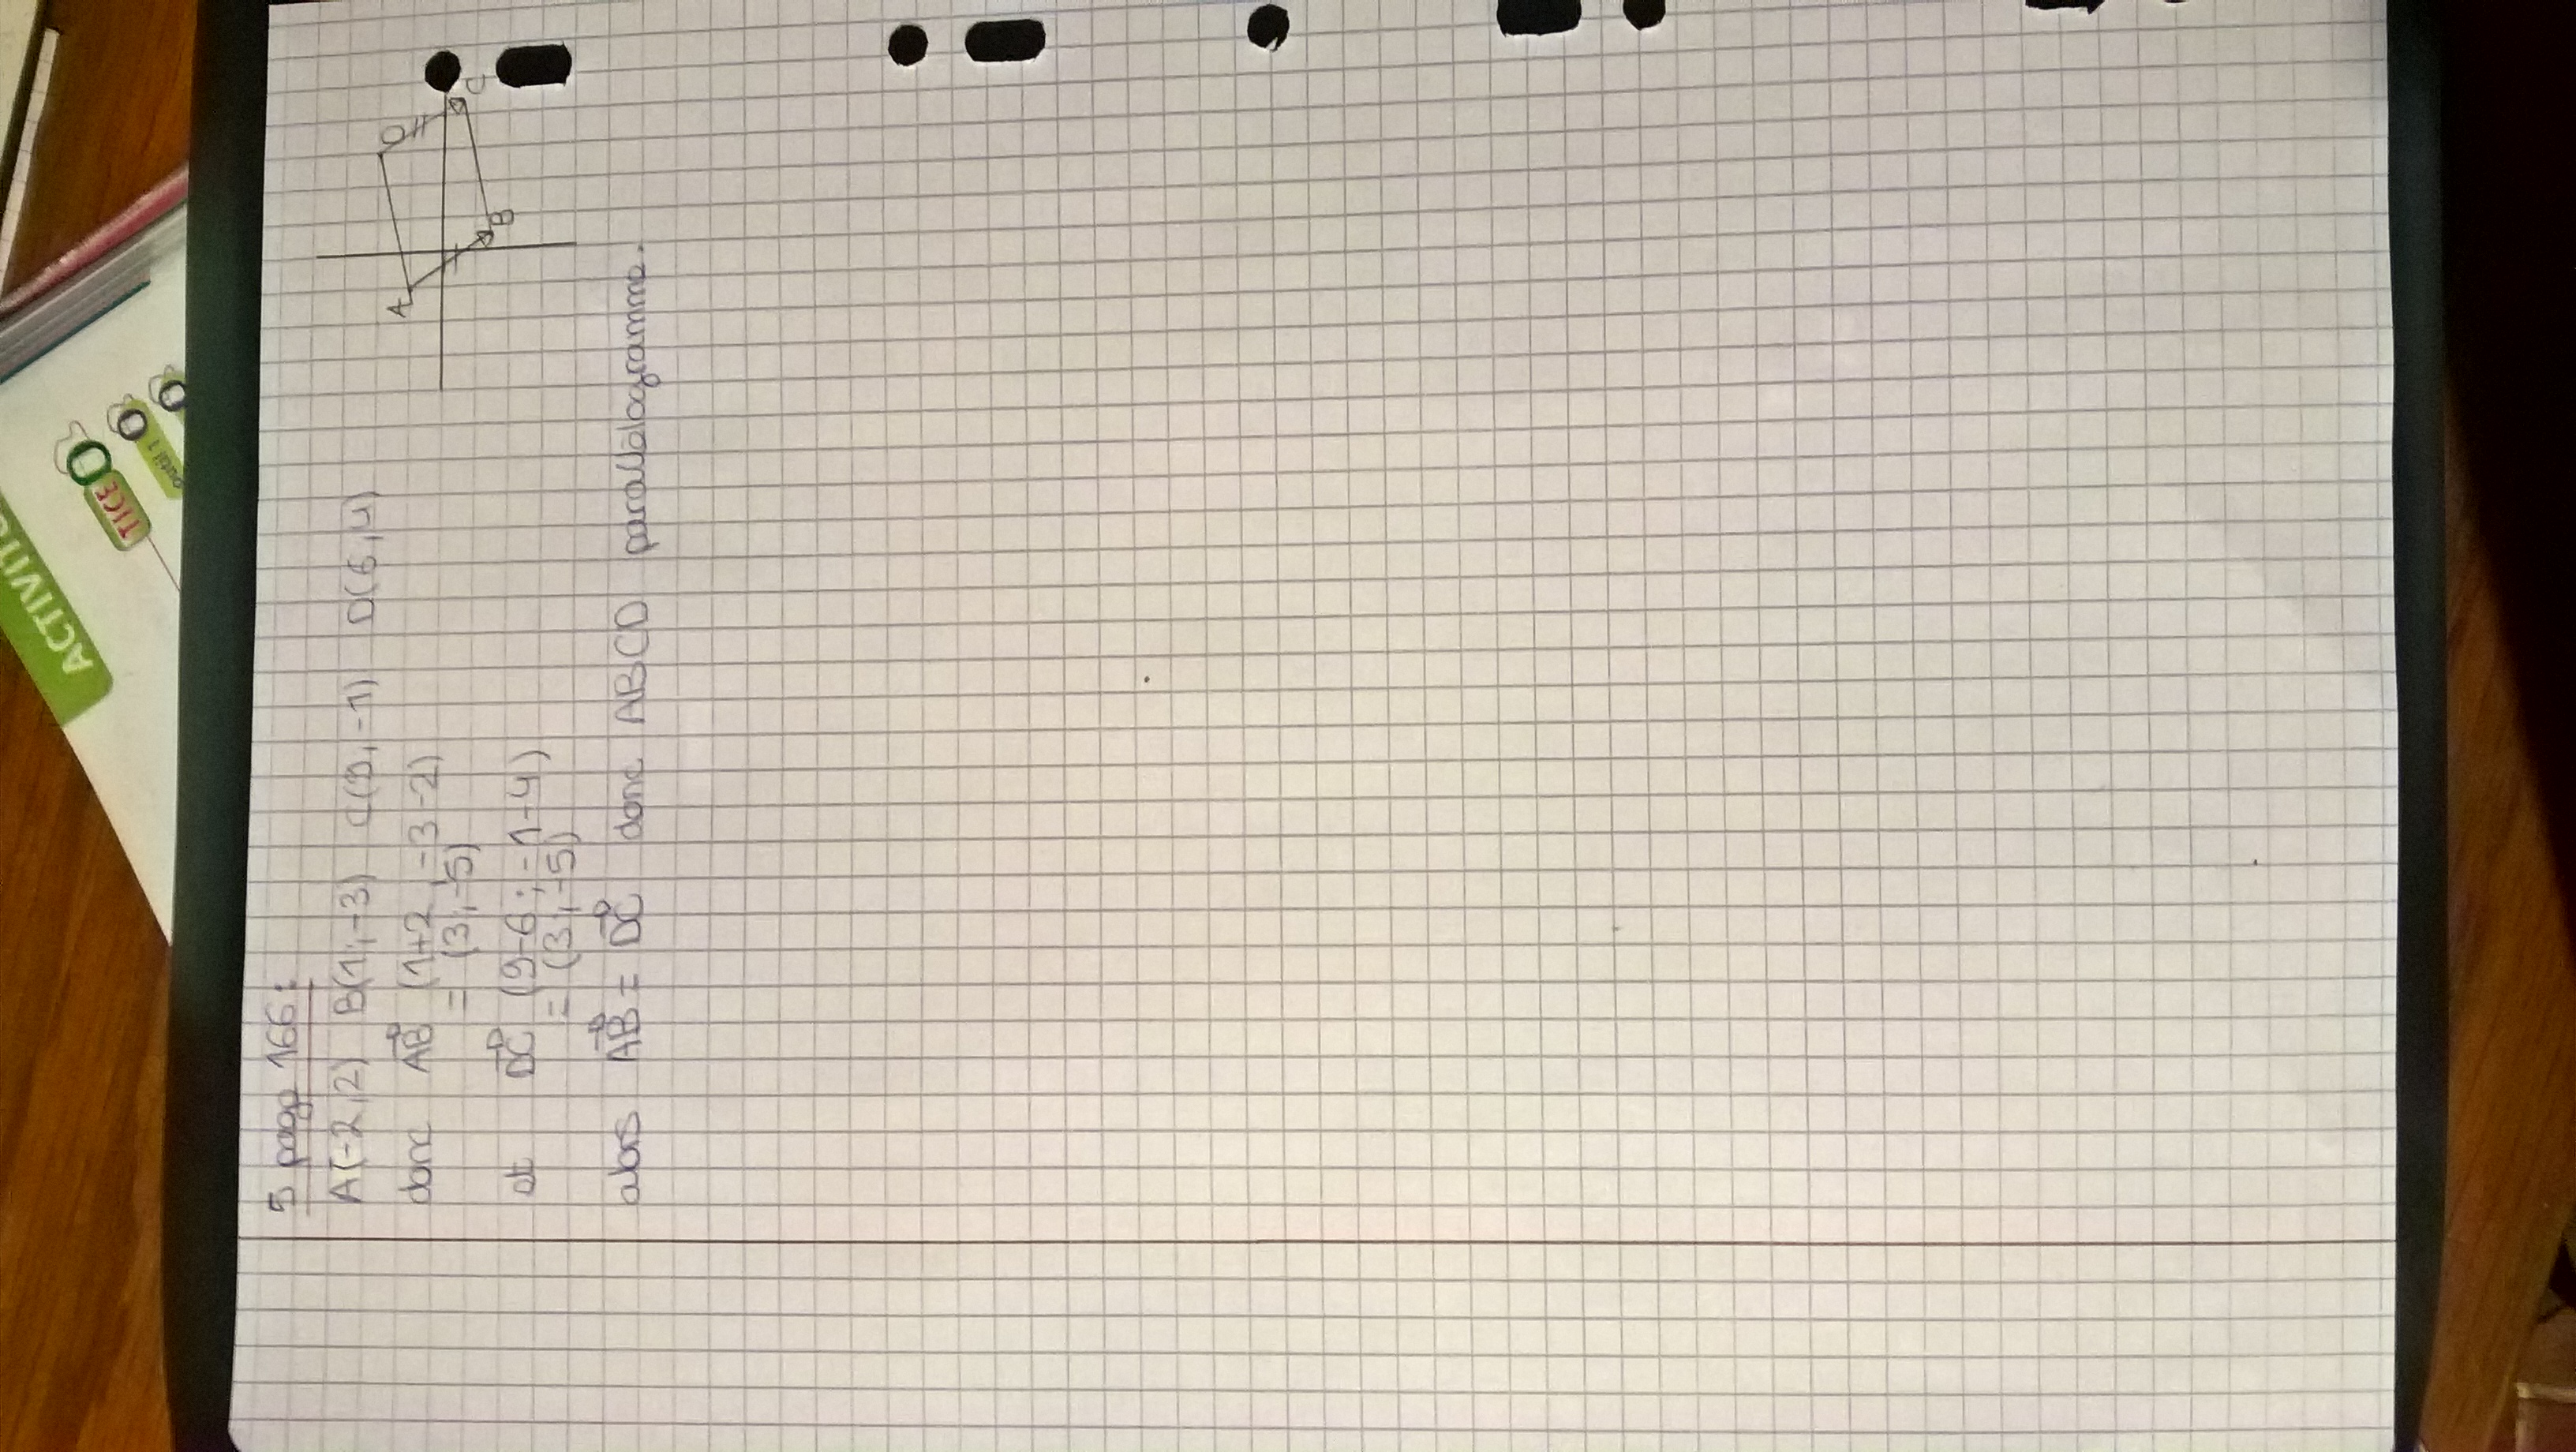 ACTIVIT
TICE
outil 1
5 page 166 :
A(-2,2) B(1;-3) C(9,-1) D(6,4)
donc AB (1+2,-3-2)
= (3,-5)
et DC (9-6;-1-4)
= (3,-5)
alors AB = DC donc ABCD parallélogramme.
A
D
C
B